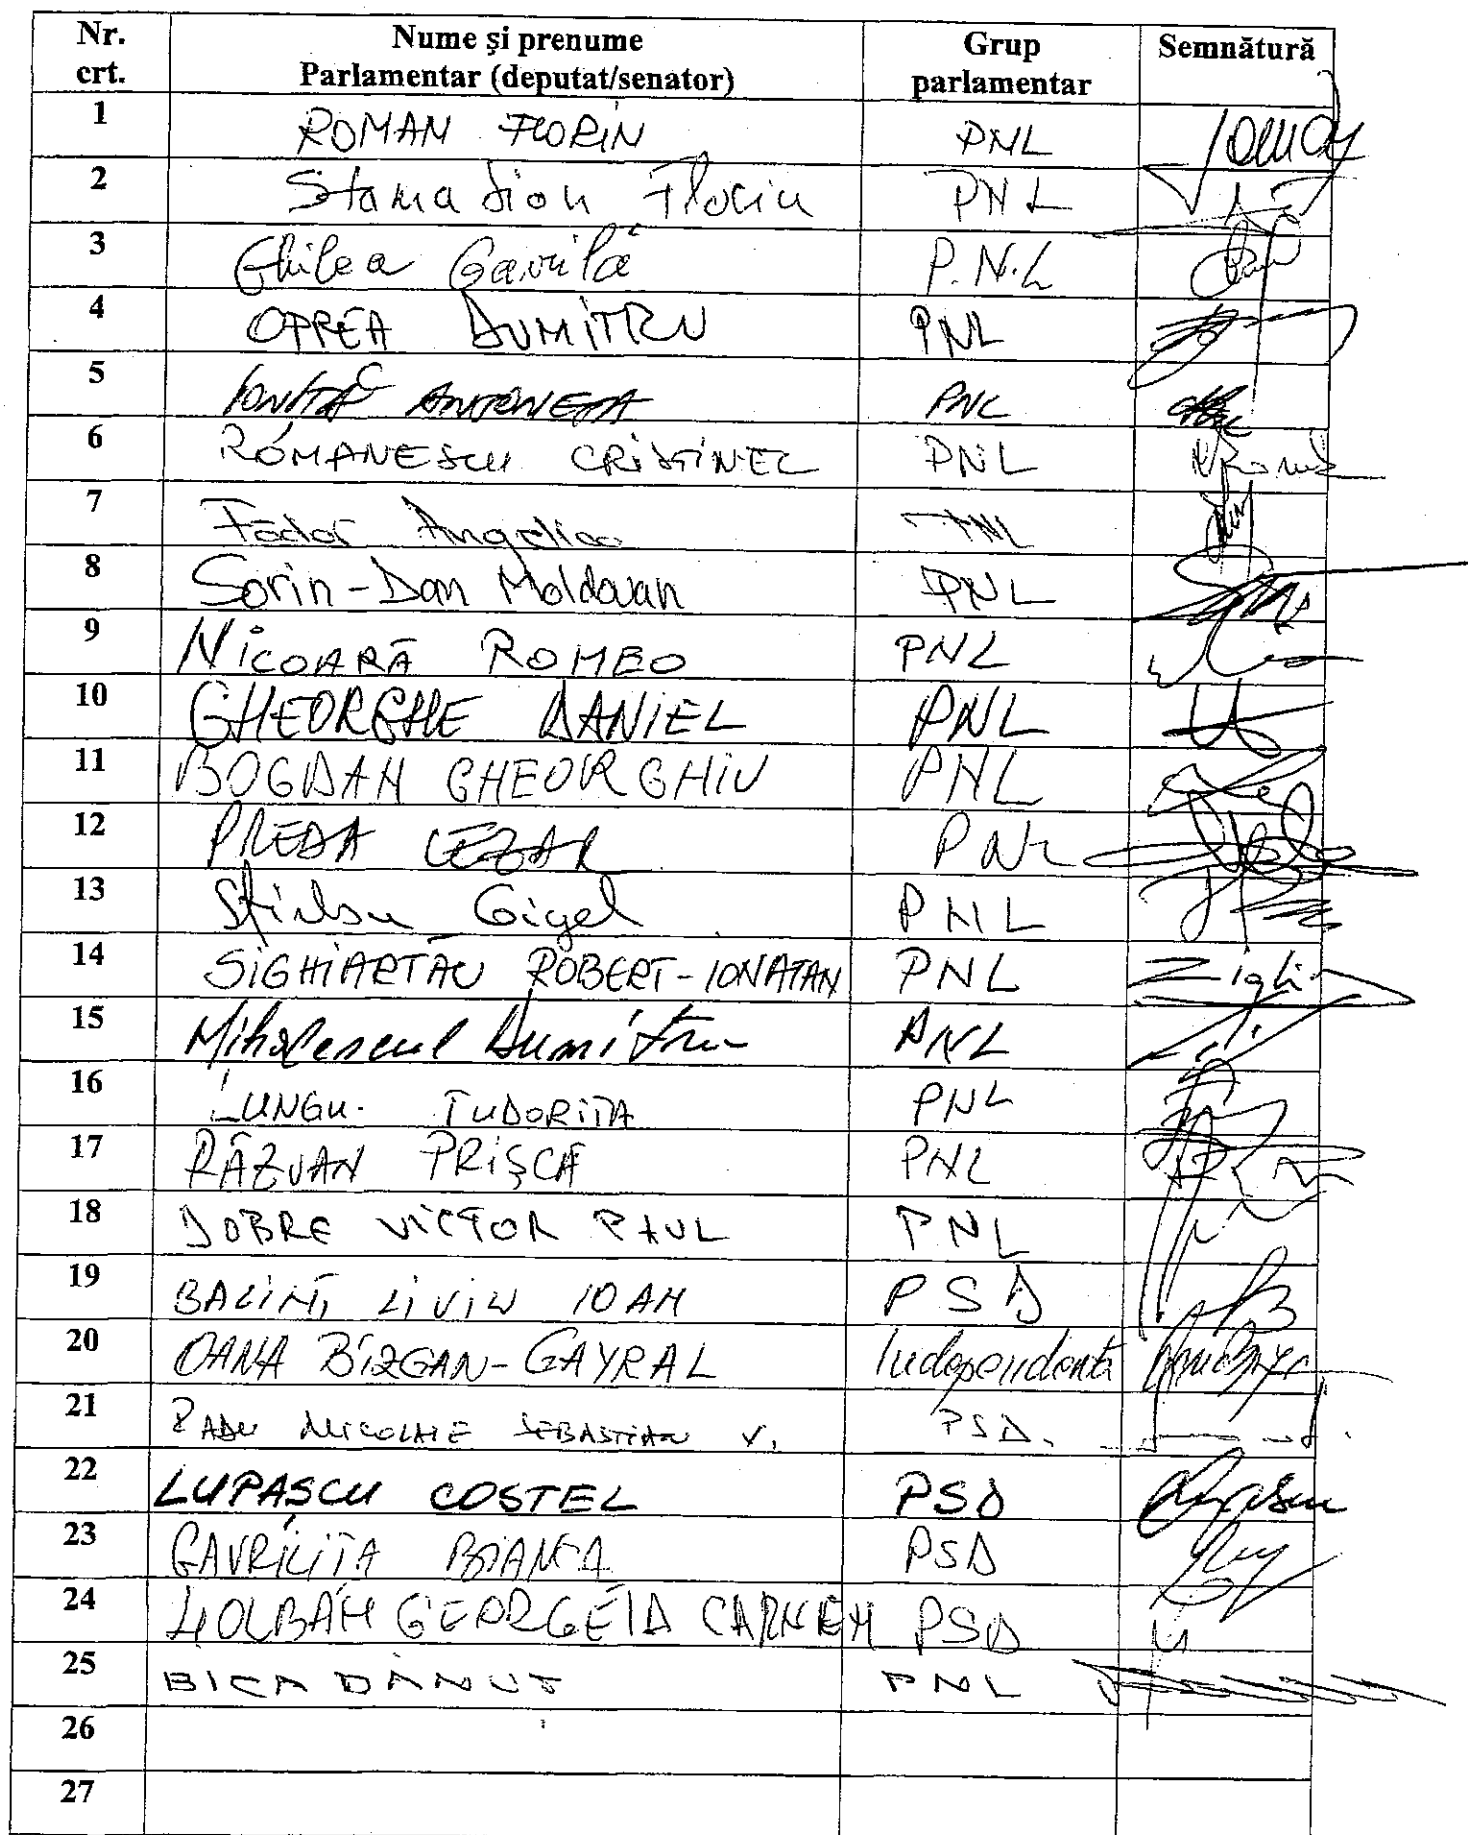 Nr. crt. Nume și prenume Parlamentar (deputat/senator) Grup parlamentar Semnătură
1 ROMAN FLORIN PNL
2 Stamatian Florin PNL
3 Ghilea Găvrilă P.N.L
4 OPREA DUMITRU PNL
5 IONIȚĂ ANTONETA PNL
6 ROMANESCU CRISTINEL PNL
7 Fădor Angelica PNL
8 Sorin-Dan Moldovan PNL
9 NICOARĂ ROMEO PNL
10 GHEORGHE DANIEL PNL
11 BOGDAN GHEORGHIU PNL
12 PREDA CEZAR PNL
13 Știrbu Gigel PNL
14 SIGHIARTĂU ROBERT-IONATAN PNL
15 Mihalescul Dumitru PNL
16 LUNGU TUDORIȚA PNL
17 RĂZVAN PRIȘCĂ PNL
18 DOBRE VICTOR PAUL PNL
19 BALINT LIVIU IOAN PSD
20 OANA BÎZGAN-GAYRAL Independentă
21 RADU NICOLAE SEBASTIAN V. PSD.
22 LUPASCU COSTEL PSD
23 GAVRILIȚĂ BIANCA PSD
24 HOLBAN GEORGETA CARMEN PSD
25 BICA DĂNUȚ PNL
26
27